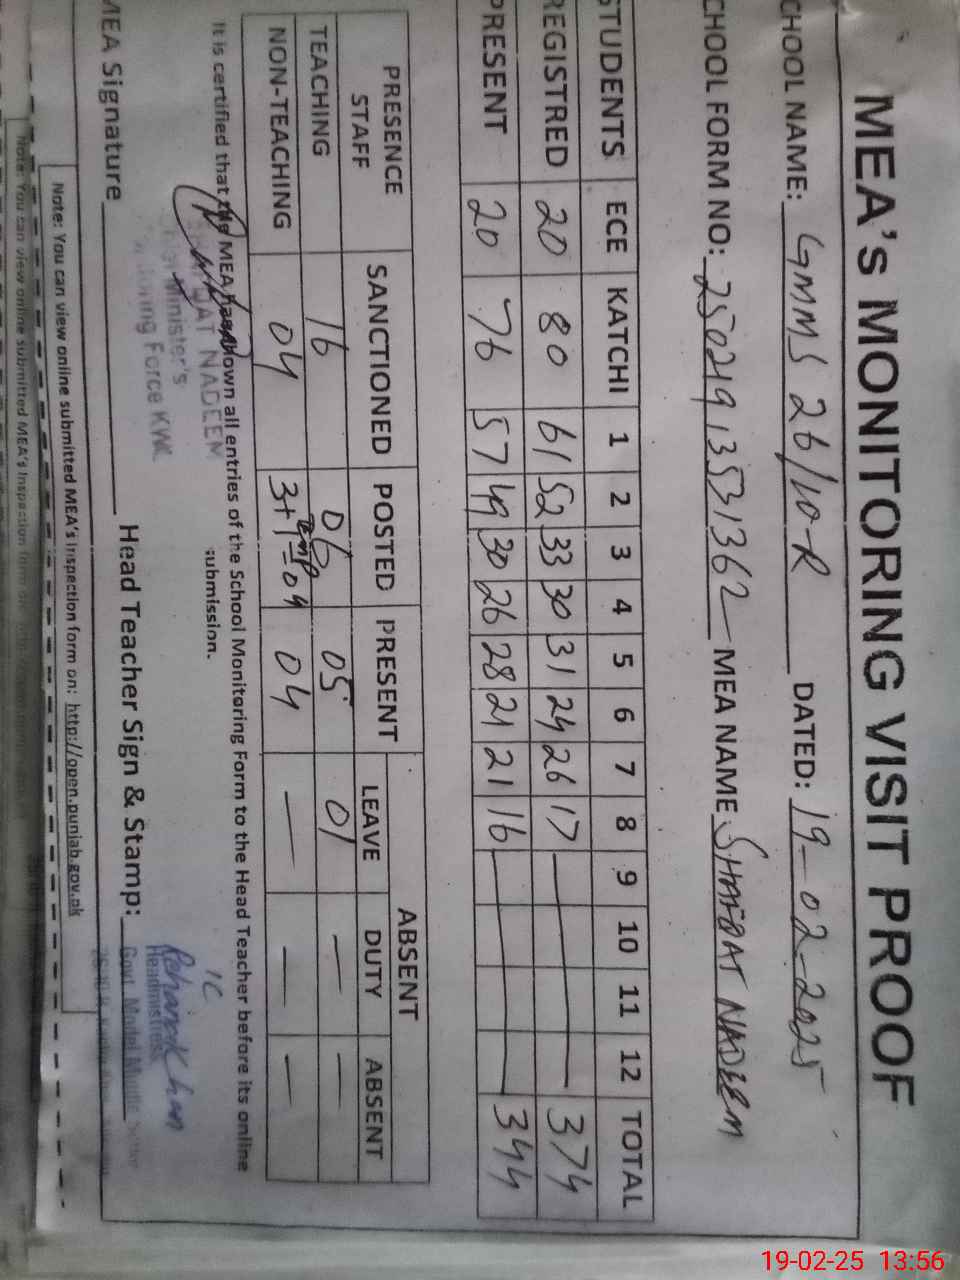 MEA's MONITORING VISIT PROOF
CHOOL NAME: GMMS 26/10-R DATED: 19-02-2025
CHOOL FORM NO: 25021913531362 MEA NAME SHAFQAT NADEEM
STUDENTS ECE KATCHI 1 2 3 4 5 6 7 8 9 10 11 12 TOTAL
REGISTRED 20 80 61 52 33 30 31 24 26 17 374
PRESENT 20 76 57 49 30 26 28 21 21 16 344
PRESENCE STAFF SANCTIONED POSTED PRESENT ABSENT
LEAVE DUTY ABSENT
TEACHING 16 06 05 01 — —
NON-TEACHING 04 3+1=04 04 — — —
It is certified that the MEA has shown all entries of the School Monitoring Form to the Head Teacher before its online
submission.
SHAFQAT NADEEM
Chief Minister's
Monitoring Force KWL
I/C
Headmistress
Govt. Model Middle
MEA Signature Head Teacher Sign & Stamp:
Note: You can view online submitted MEA's Inspection form on: http://open.punjab.gov.pk
Note: You can view online submitted MEA's Inspection form on:
19-02-25 13:56